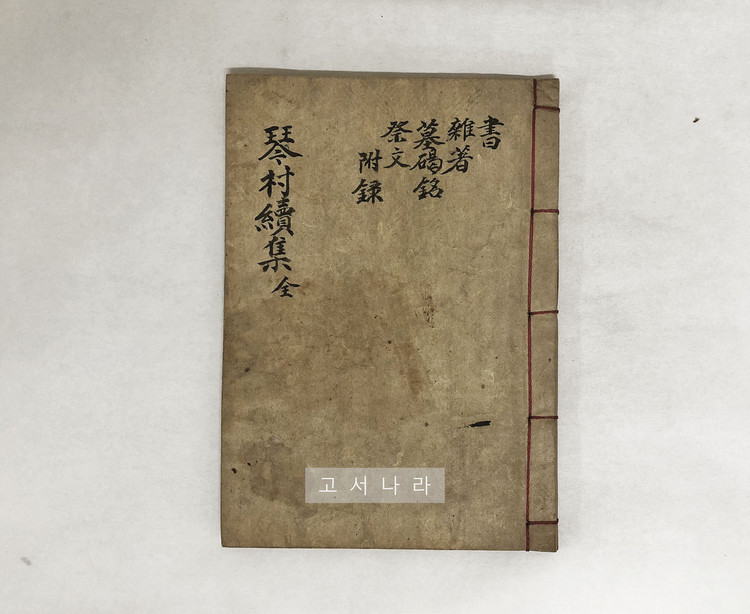 書
雜著
墓碣銘
祭文
附録
琴村續集 全
고서나라